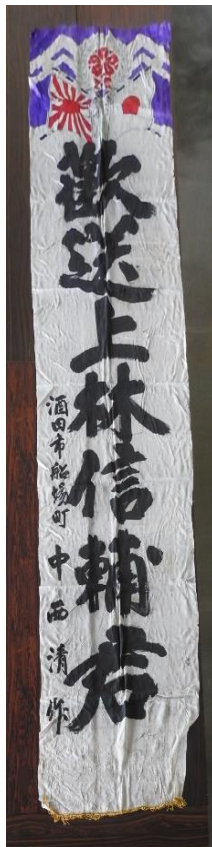 歡送上林信輔君
酒田市船場町 中西清作